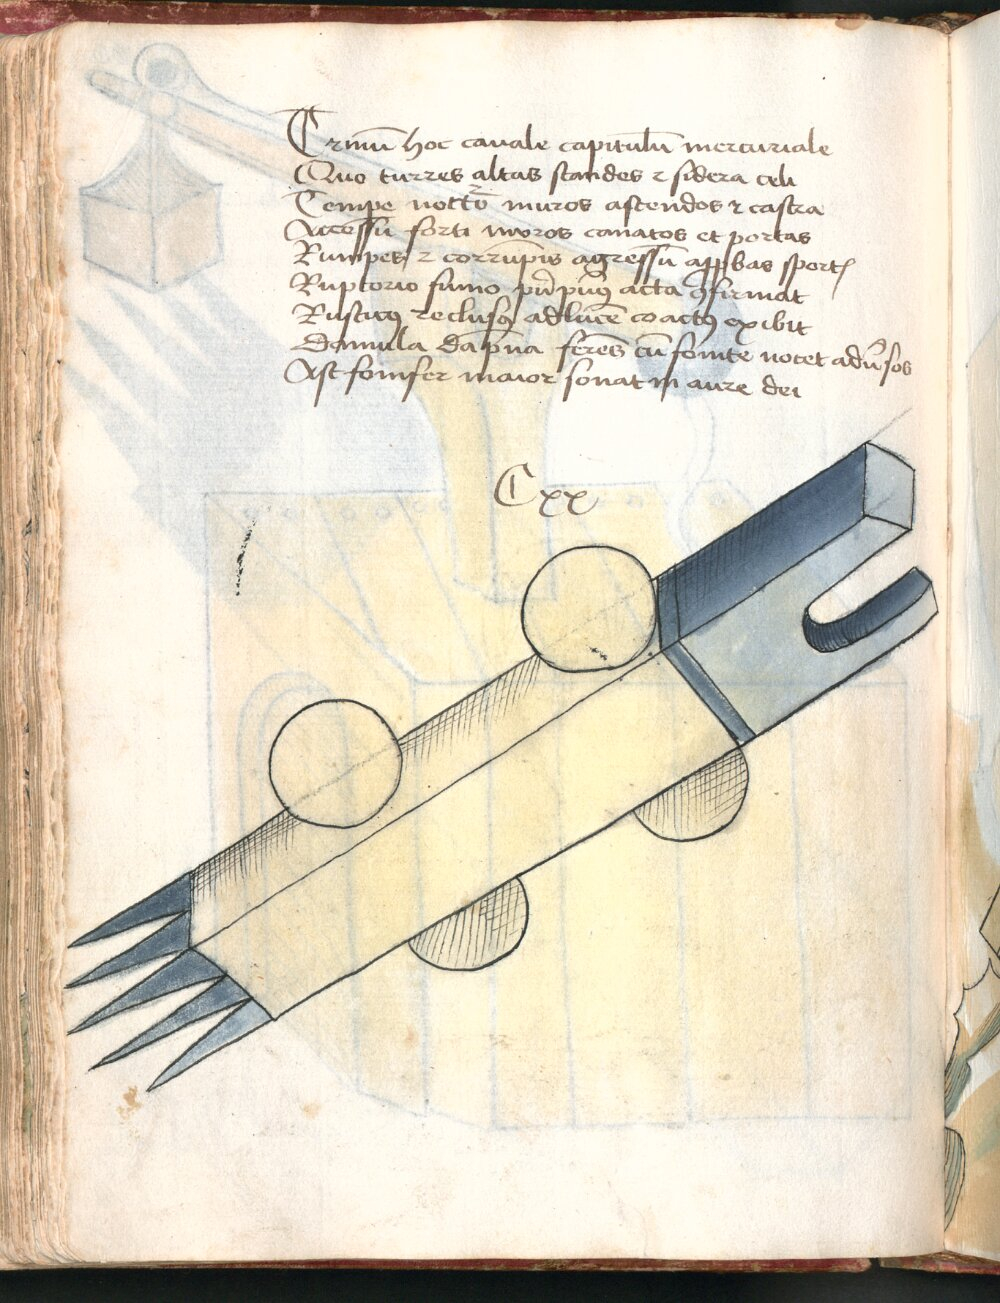 Trinum hoc cauale capitulum mercuriale
Quo turres altas scandes ⁊ sidera celi
Tempe noct̄ ⁊ muros ascendos ⁊ castra
Accessū forti muros conatos et portas
Rumpes ⁊ corrūpis agressū app̄bas
Ruptorio sumo acta ꝯfirmat
Rusticꝰ reclusꝰ ad lucē coactꝰ exibit
Domula feres cū fomite nocet adūsos
Ast fomfer maior sonat in aure dei
Cxx